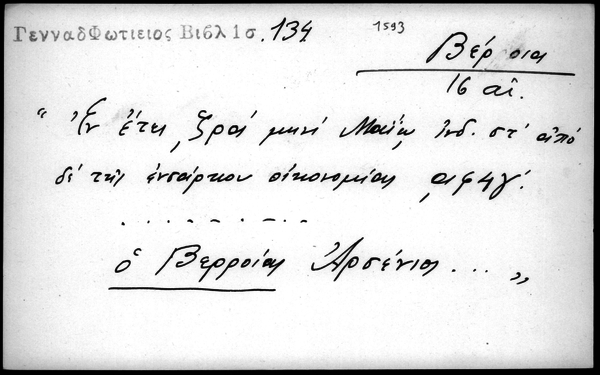 ΓενναδΦωτιειος Βιβλ 1σ.134
1593
Βέρροια
16 αἰ.
"Ἐν ἔτει ͵ζραʹ μηνί Μαΐῳ ἰνδ. στʹ ἀπό
δέ τῆς ἐνσάρκου οἰκονομίας ͵αφϟγʹ.
. . . . . . - . - . .
ὁ Βερροίας Ἀρσένιος ... "